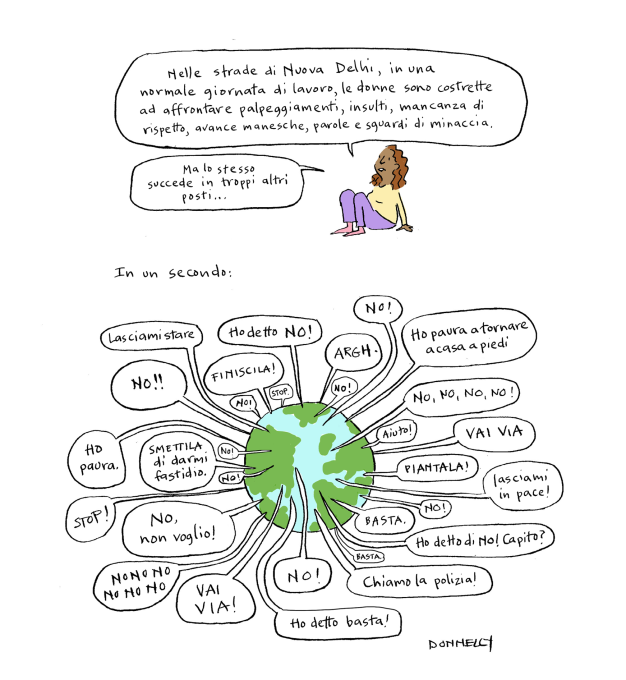 Nelle strade di Nuova Delhi, in una
normale giornata di lavoro, le donne sono costrette
ad affrontare palpeggiamenti, insulti, mancanza di
rispetto, avance manesche, parole e sguardi di minaccia.
Ma lo stesso
succede in troppi altri
posti...
In un secondo:
Lasciami stare
Ho detto NO!
NO!
Ho paura a tornare
a casa a piedi
ARGH.
FINISCILA!
NO!!
STOP.
NO!
NO!
NO, NO, NO, NO!
Aiuto!
VAI VIA
Ho
paura.
SMETTILA
di darmi
fastidio.
NO!
NO!
PIANTALA!
lasciami
in pace!
STOP!
NO,
non voglio!
BASTA.
NO!
Ho detto di NO! Capito?
BASTA.
NO NO NO
NO NO NO
VAI
VIA!
NO!
Chiamo la polizia!
Ho detto basta!
DONNELLY